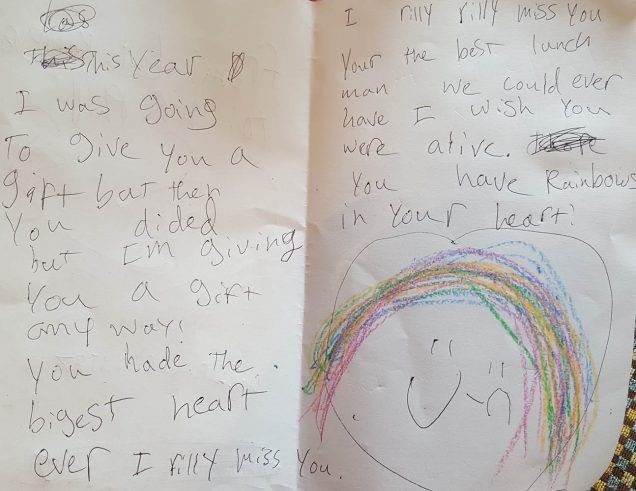 This Year
I was going
To give you a
gift but then
You dided
but I'm giving
you a gift
any way!
You hade the
bigest heart
ever I rilly miss You.
I rilly rilly miss You
Your the best lunch
man we could ever
have I wish You
were alive.
You have Rainbows
in Your heart!